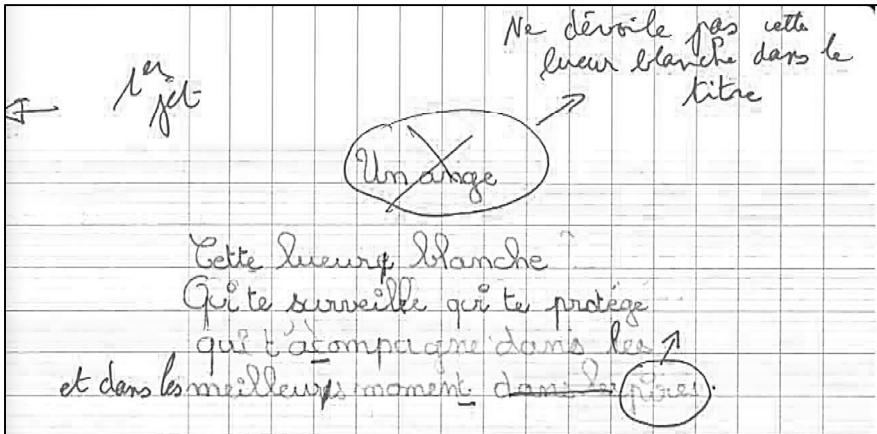 Ne dévoile pas cette
lueur blanche dans le
titre
1er jet
Un ange
Cette lueur blanche
Qui te surveille qui te protége
qui t'acompagne dans les
et dans les meilleurs moment dans les pires.